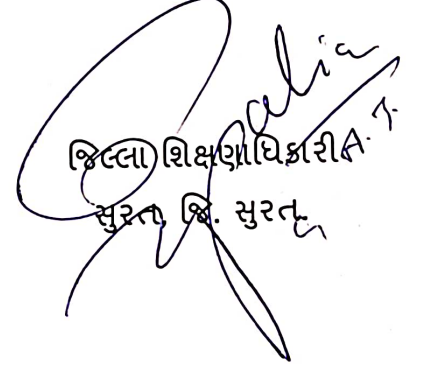 જિલ્લા શિક્ષણાધિકારી
સુરત, જિ. સુરત